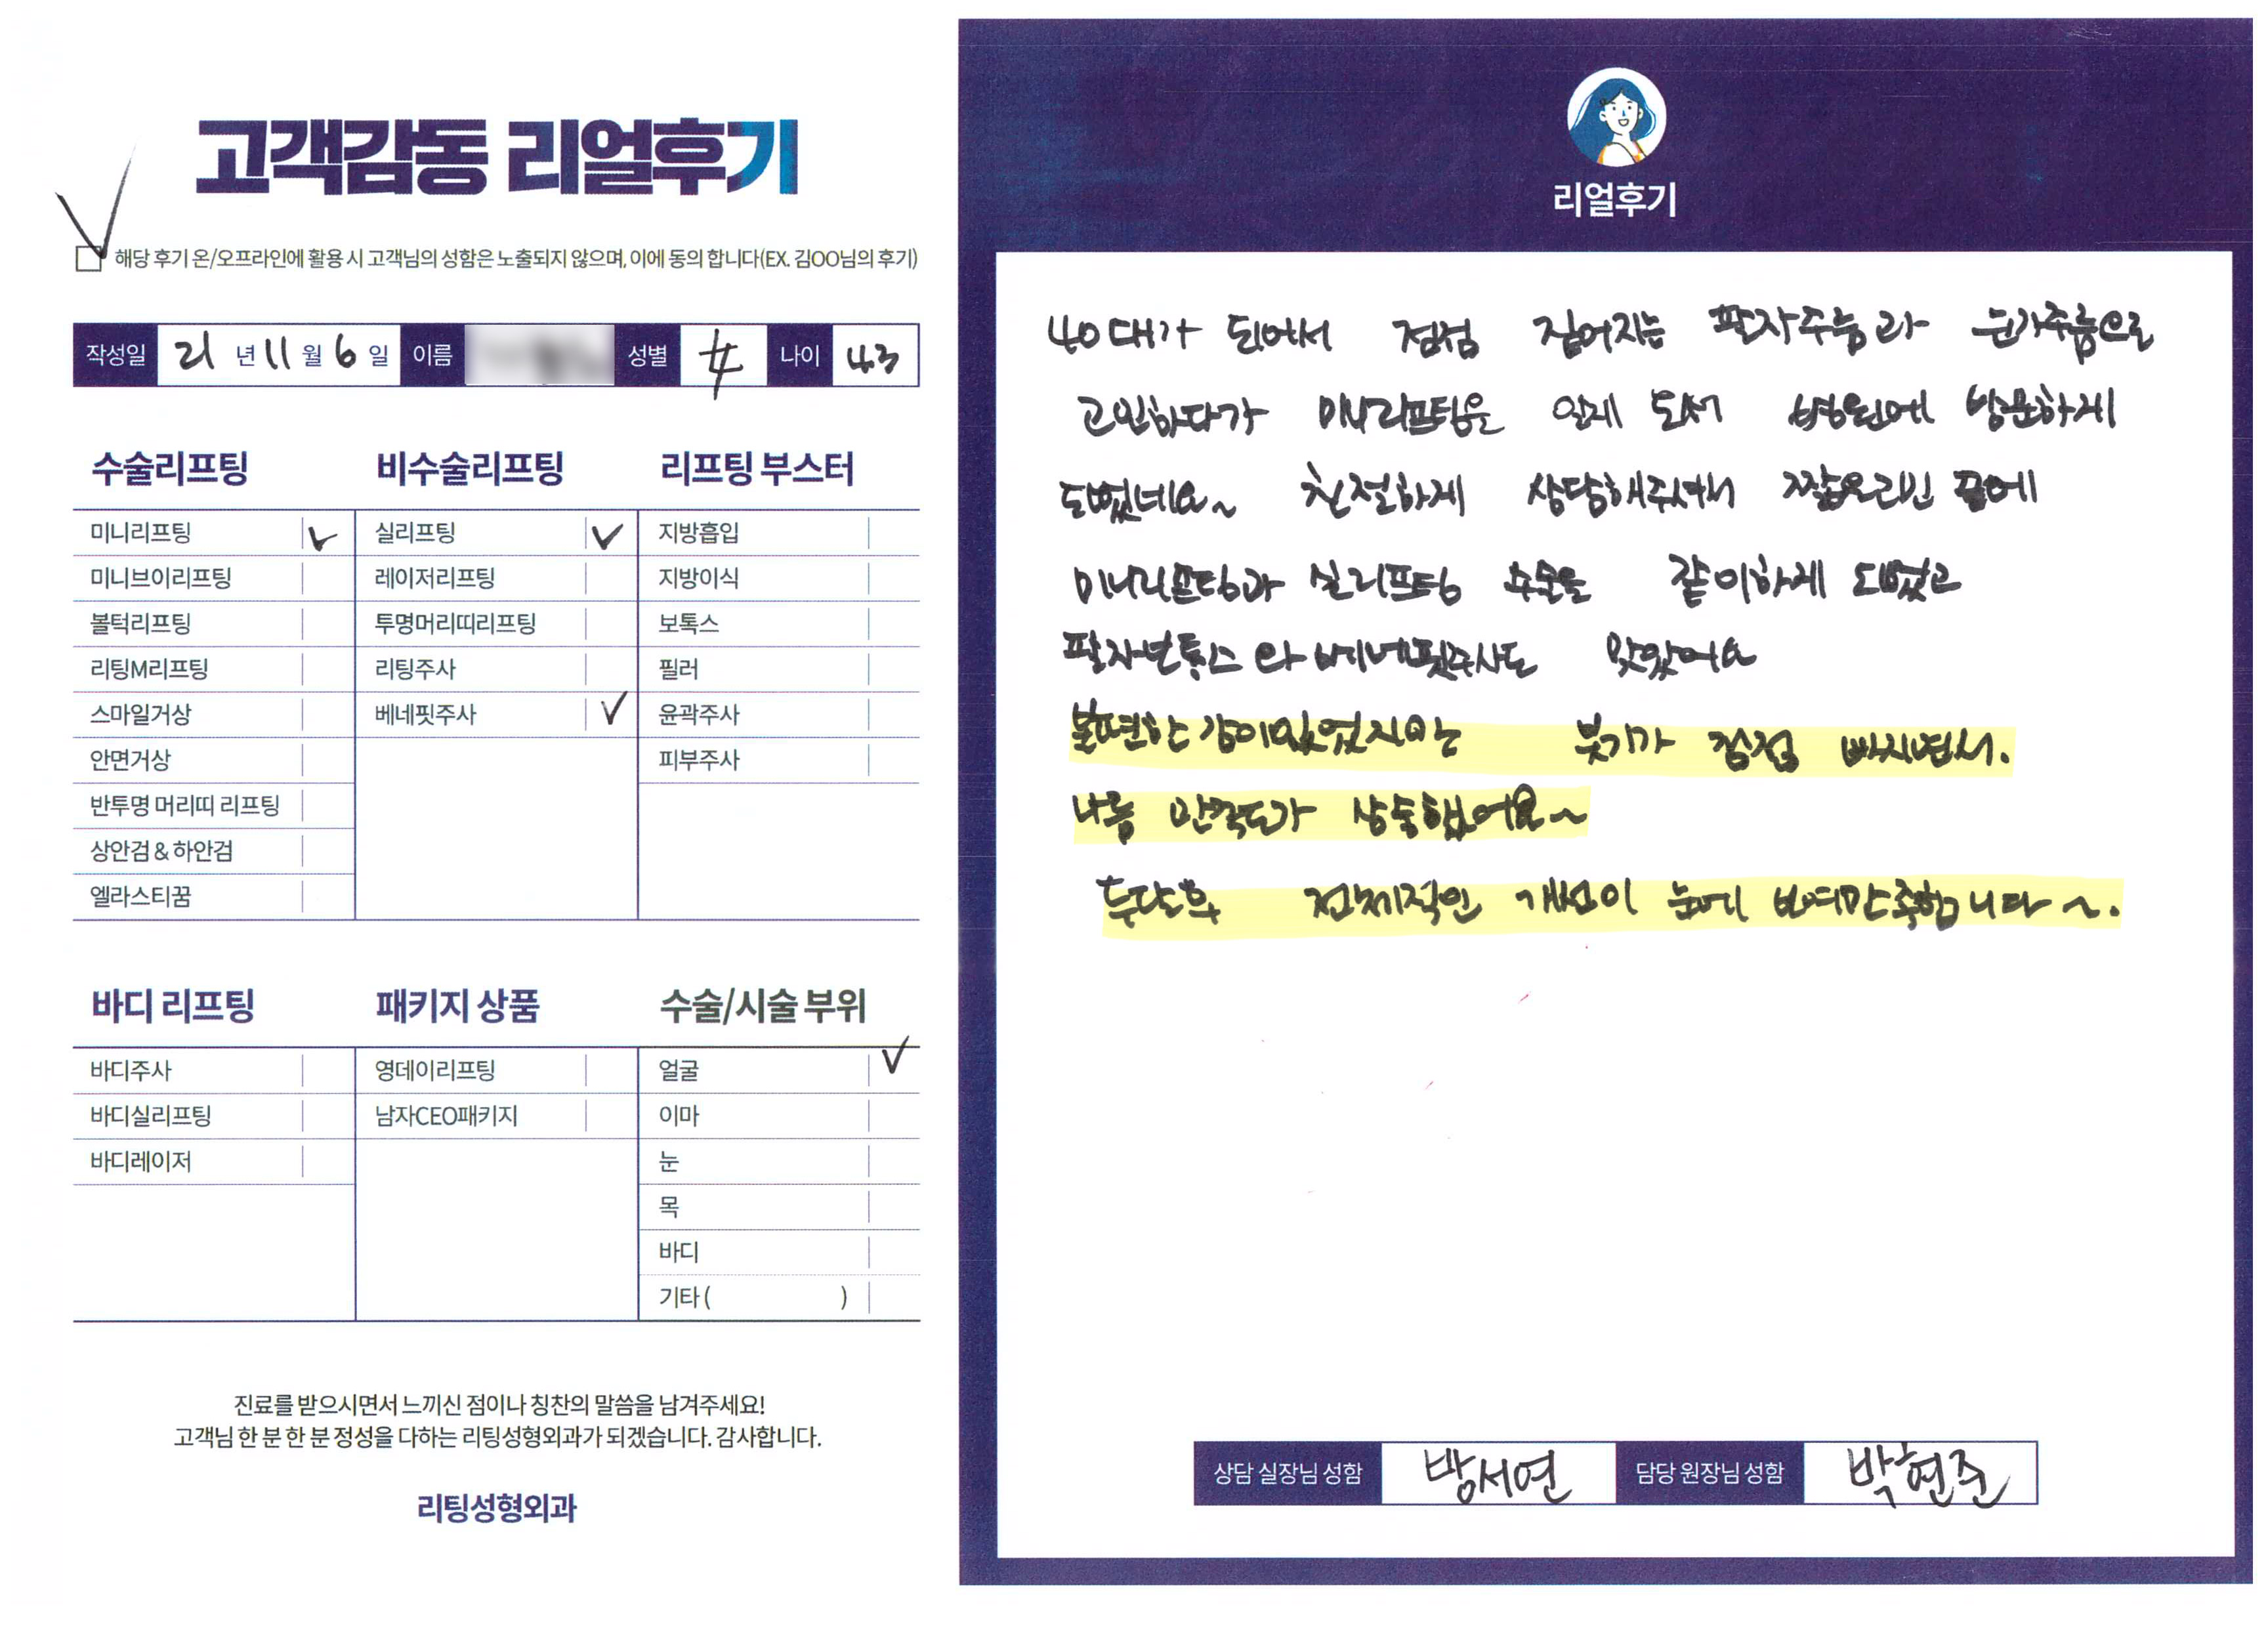 고객감동 리얼후기
해당 후기 온/오프라인에 활용 시 고객님의 성함은 노출되지 않으며, 이에 동의 합니다(EX. 김OO님의 후기)
작성일 21 년 11 월 6 일 이름 성별 女 나이 43
수술리프팅
미니리프팅
미니브이리프팅
볼턱리프팅
리팅M리프팅
스마일거상
안면거상
반투명 머리띠 리프팅
상안검 & 하안검
엘라스티꿈
비수술리프팅
실리프팅
레이저리프팅
투명머리띠리프팅
리팅주사
베네핏주사
리프팅 부스터
지방흡입
지방이식
보톡스
필러
윤곽주사
피부주사
바디 리프팅
바디주사
바디실리프팅
바디레이저
패키지 상품
영데이리프팅
남자CEO패키지
수술/시술 부위
얼굴
이마
눈
목
바디
기타 ( )
진료를 받으시면서 느끼신 점이나 칭찬의 말씀을 남겨주세요!
고객님 한 분 한 분 정성을 다하는 리팅성형외과가 되겠습니다. 감사합니다.
리팅성형외과
리얼후기
40대가 되어서 점점 짙어지는 팔자주름과 눈가주름으로
고민하다가 미니리프팅을 알게 되서 병원에 방문하게
되었네요~ 친절하게 상담해주셔서 짧은고민 끝에
미니리프팅과 실리프팅 수술을 같이하게 되었고
팔자보톡스와 베네핏주사도 맞았어요
불편한감이있었지만 붓기가 점점 빠지면서.
나름 만족도가 상승했어요~
두달후 전체적인 개선이 눈에 보여만족합니다~.
상담 실장님 성함 방서연 담당 원장님 성함 박현준